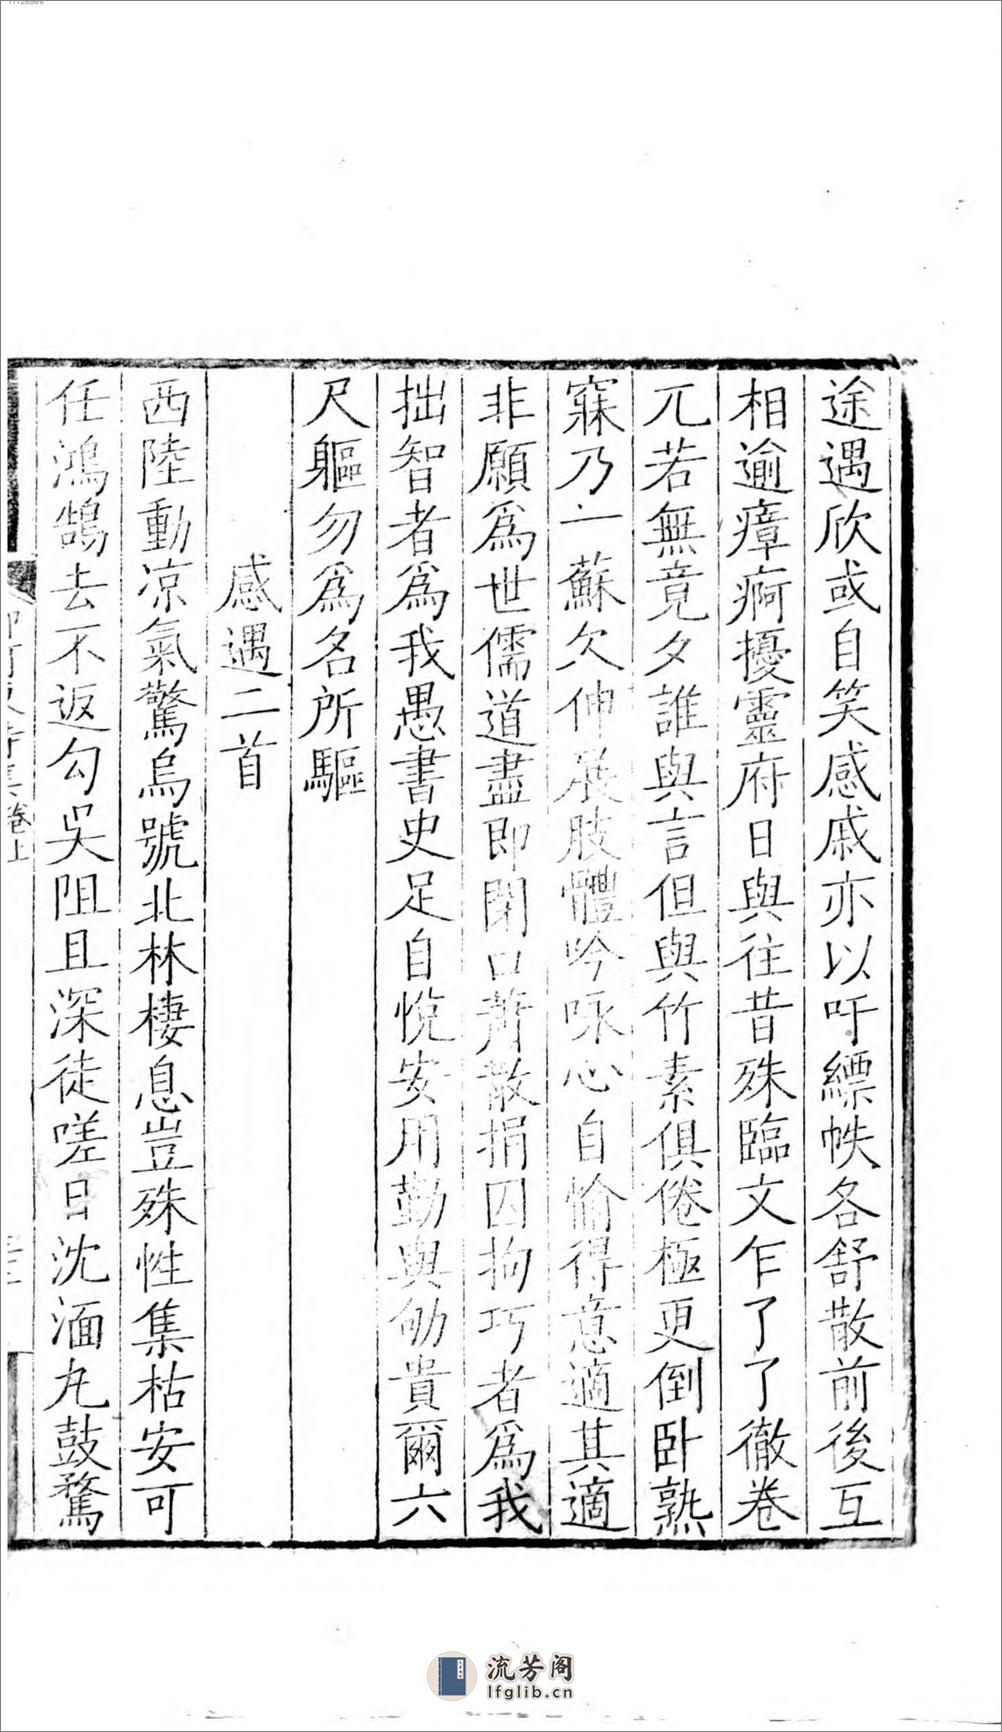 途遇欣或自笑感戚亦以吁縹帙各舒散前後互
相逾瘴痾擾靈府日與往昔殊臨文乍了了徹卷
兀若無竟夕誰與言但與竹素俱倦極更倒臥熟
寐乃一蘇欠伸展肢體吟咏心自愉得意適其適
非願為世儒道盡即閉口蕭散捐囚拘巧者為我
拙智者為我愚書史足自悅安用勤與劬貴爾六
尺軀勿為名所驅
感遇二首
西陸動凉氣驚烏號北林棲息豈殊性集枯安可
任鴻鵠去不返勾吳阻且深徒嗟日沈湎丸鼓騖
卷上
流芳阁
lfglib.cn